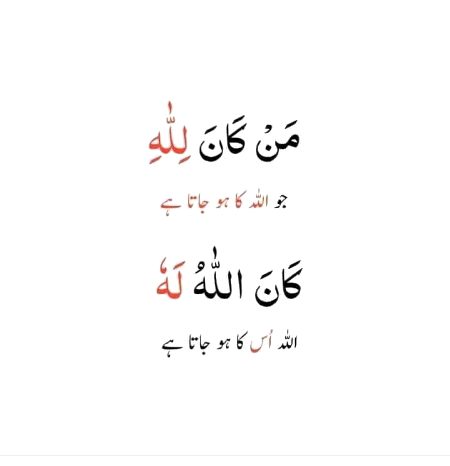 مَنْ كَانَ لِلّٰهِ
جو اللہ کا ہو جاتا ہے
كَانَ اللّٰهُ لَهٗ
اللہ اُس کا ہو جاتا ہے